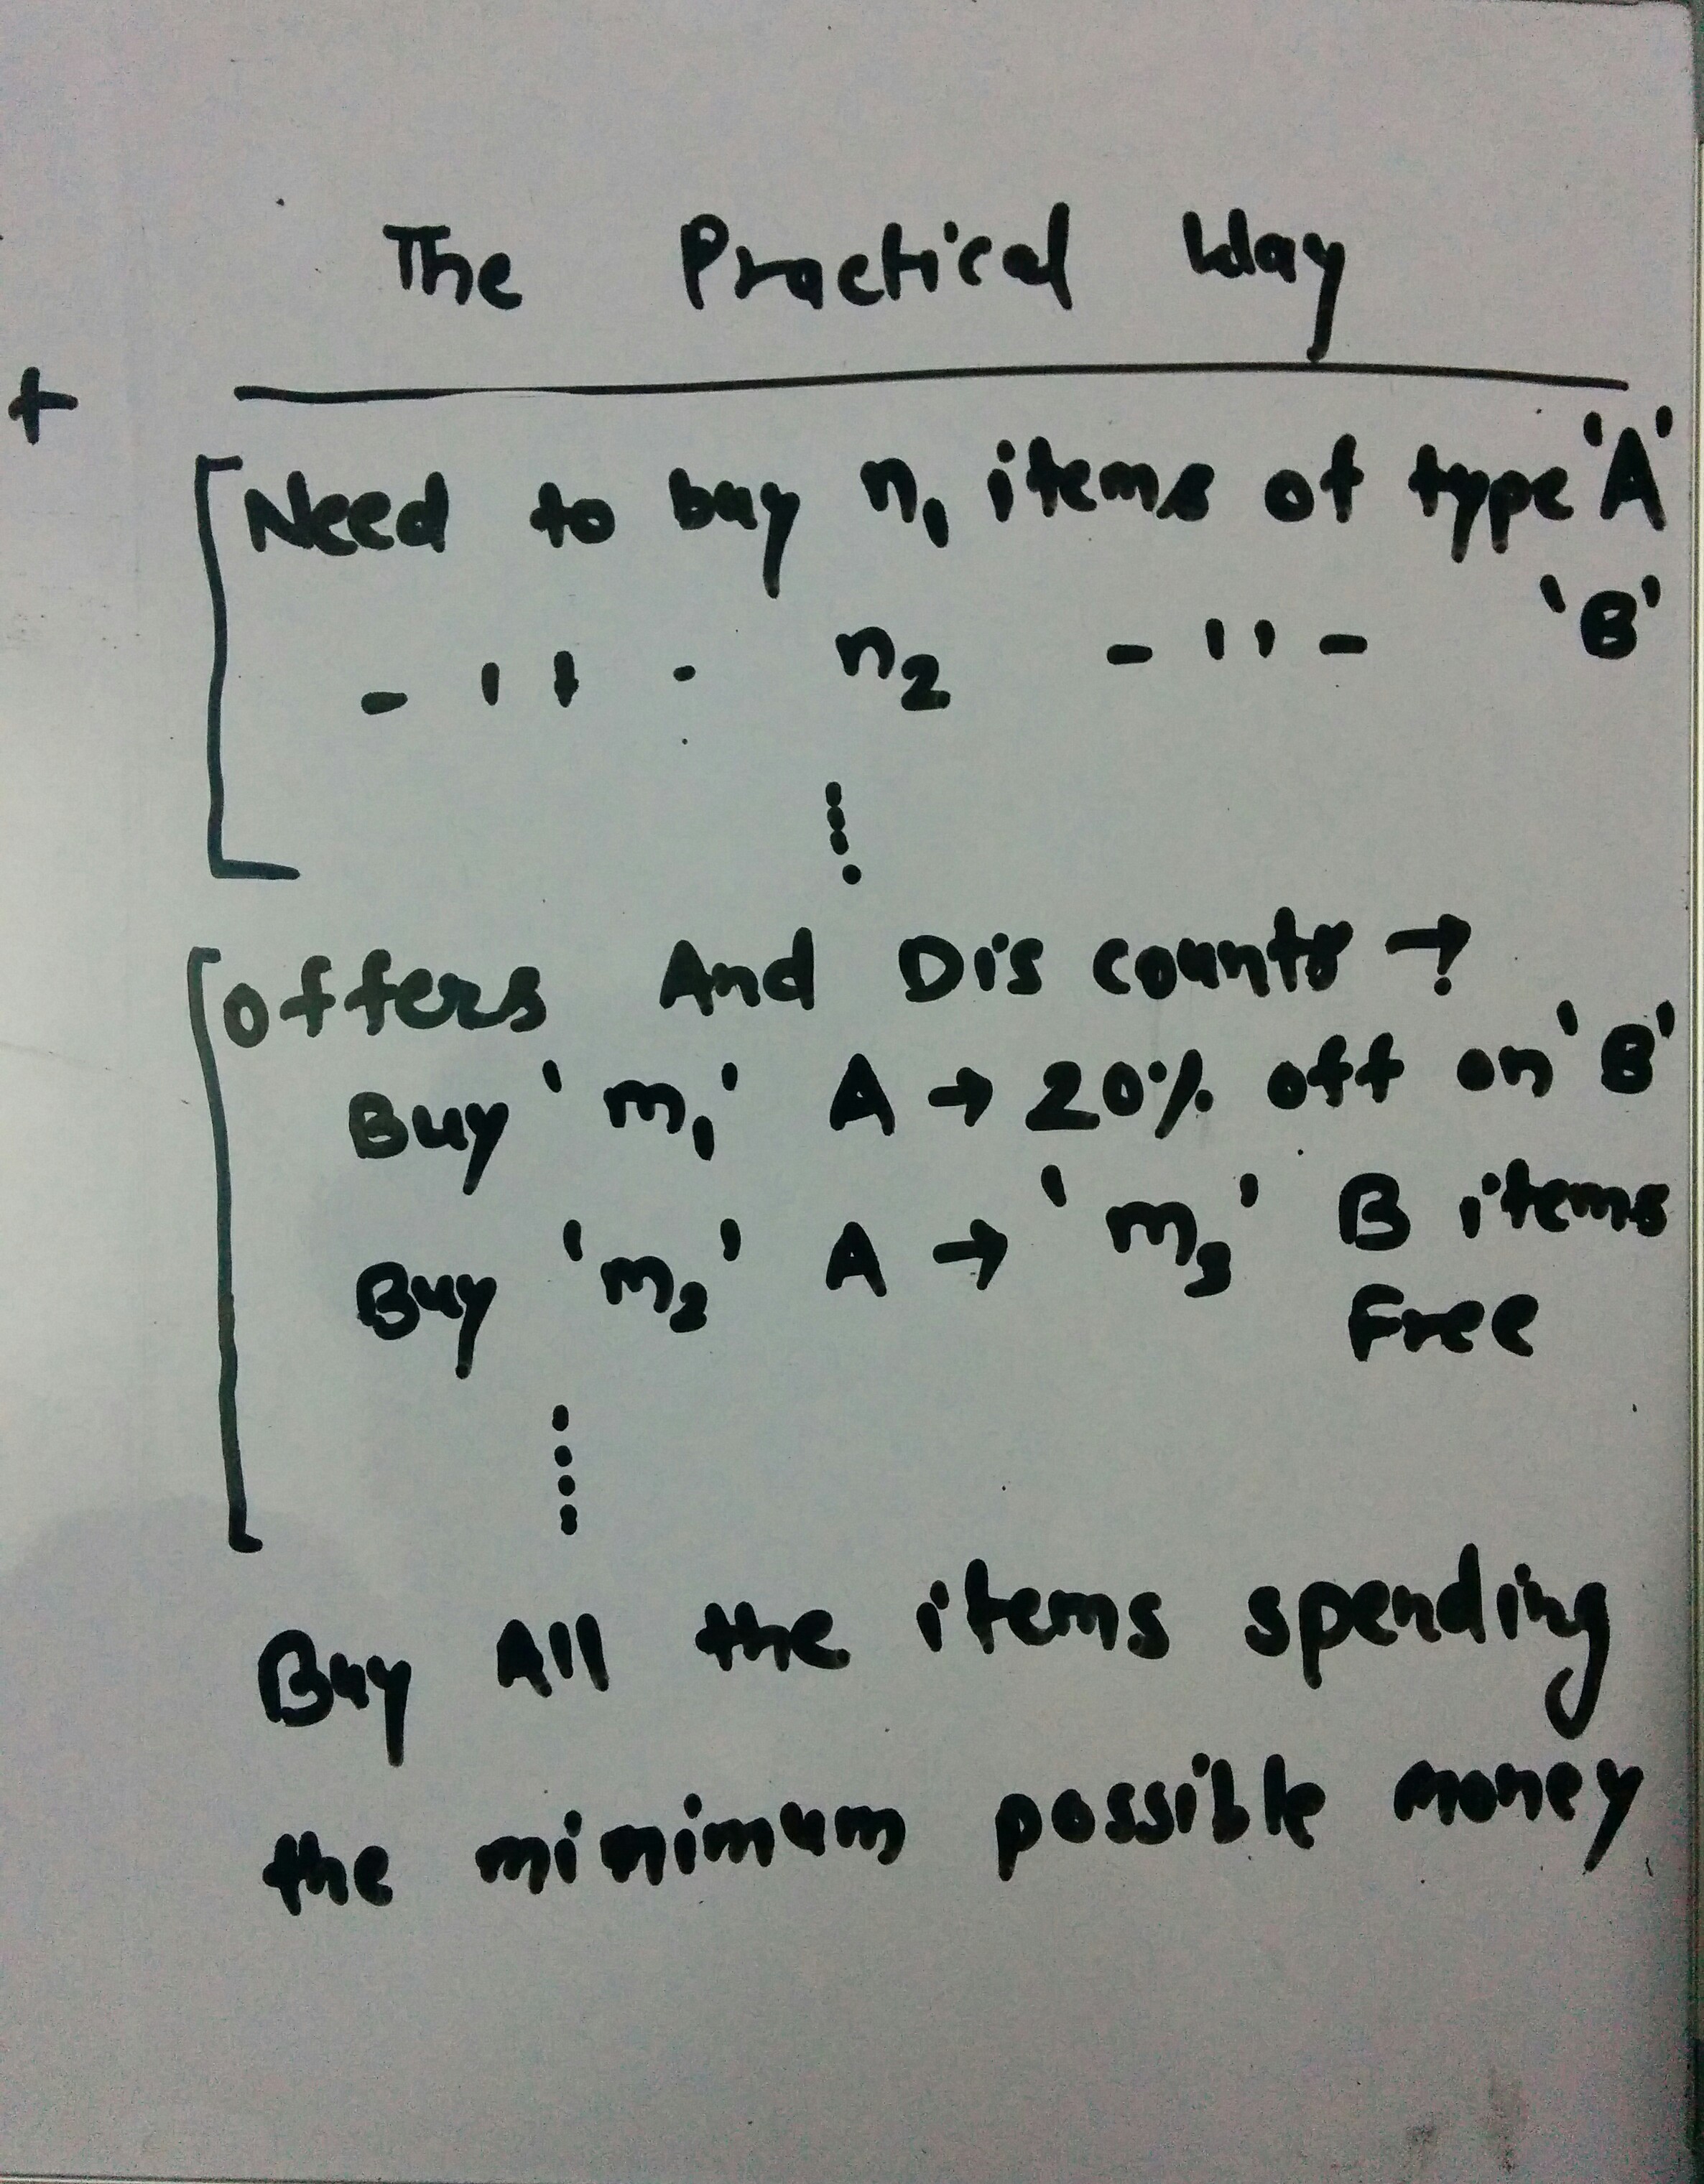 The Practical Way
+
Need to buy n₁ items of type 'A'
- '' - n₂ - '' - 'B'
⋮
Offers And Discounts →
Buy 'm₁' A → 20% off on 'B'
Buy 'm₂' A → 'm₃' B items
Free
⋮
Buy All the items spending
the minimum possible money